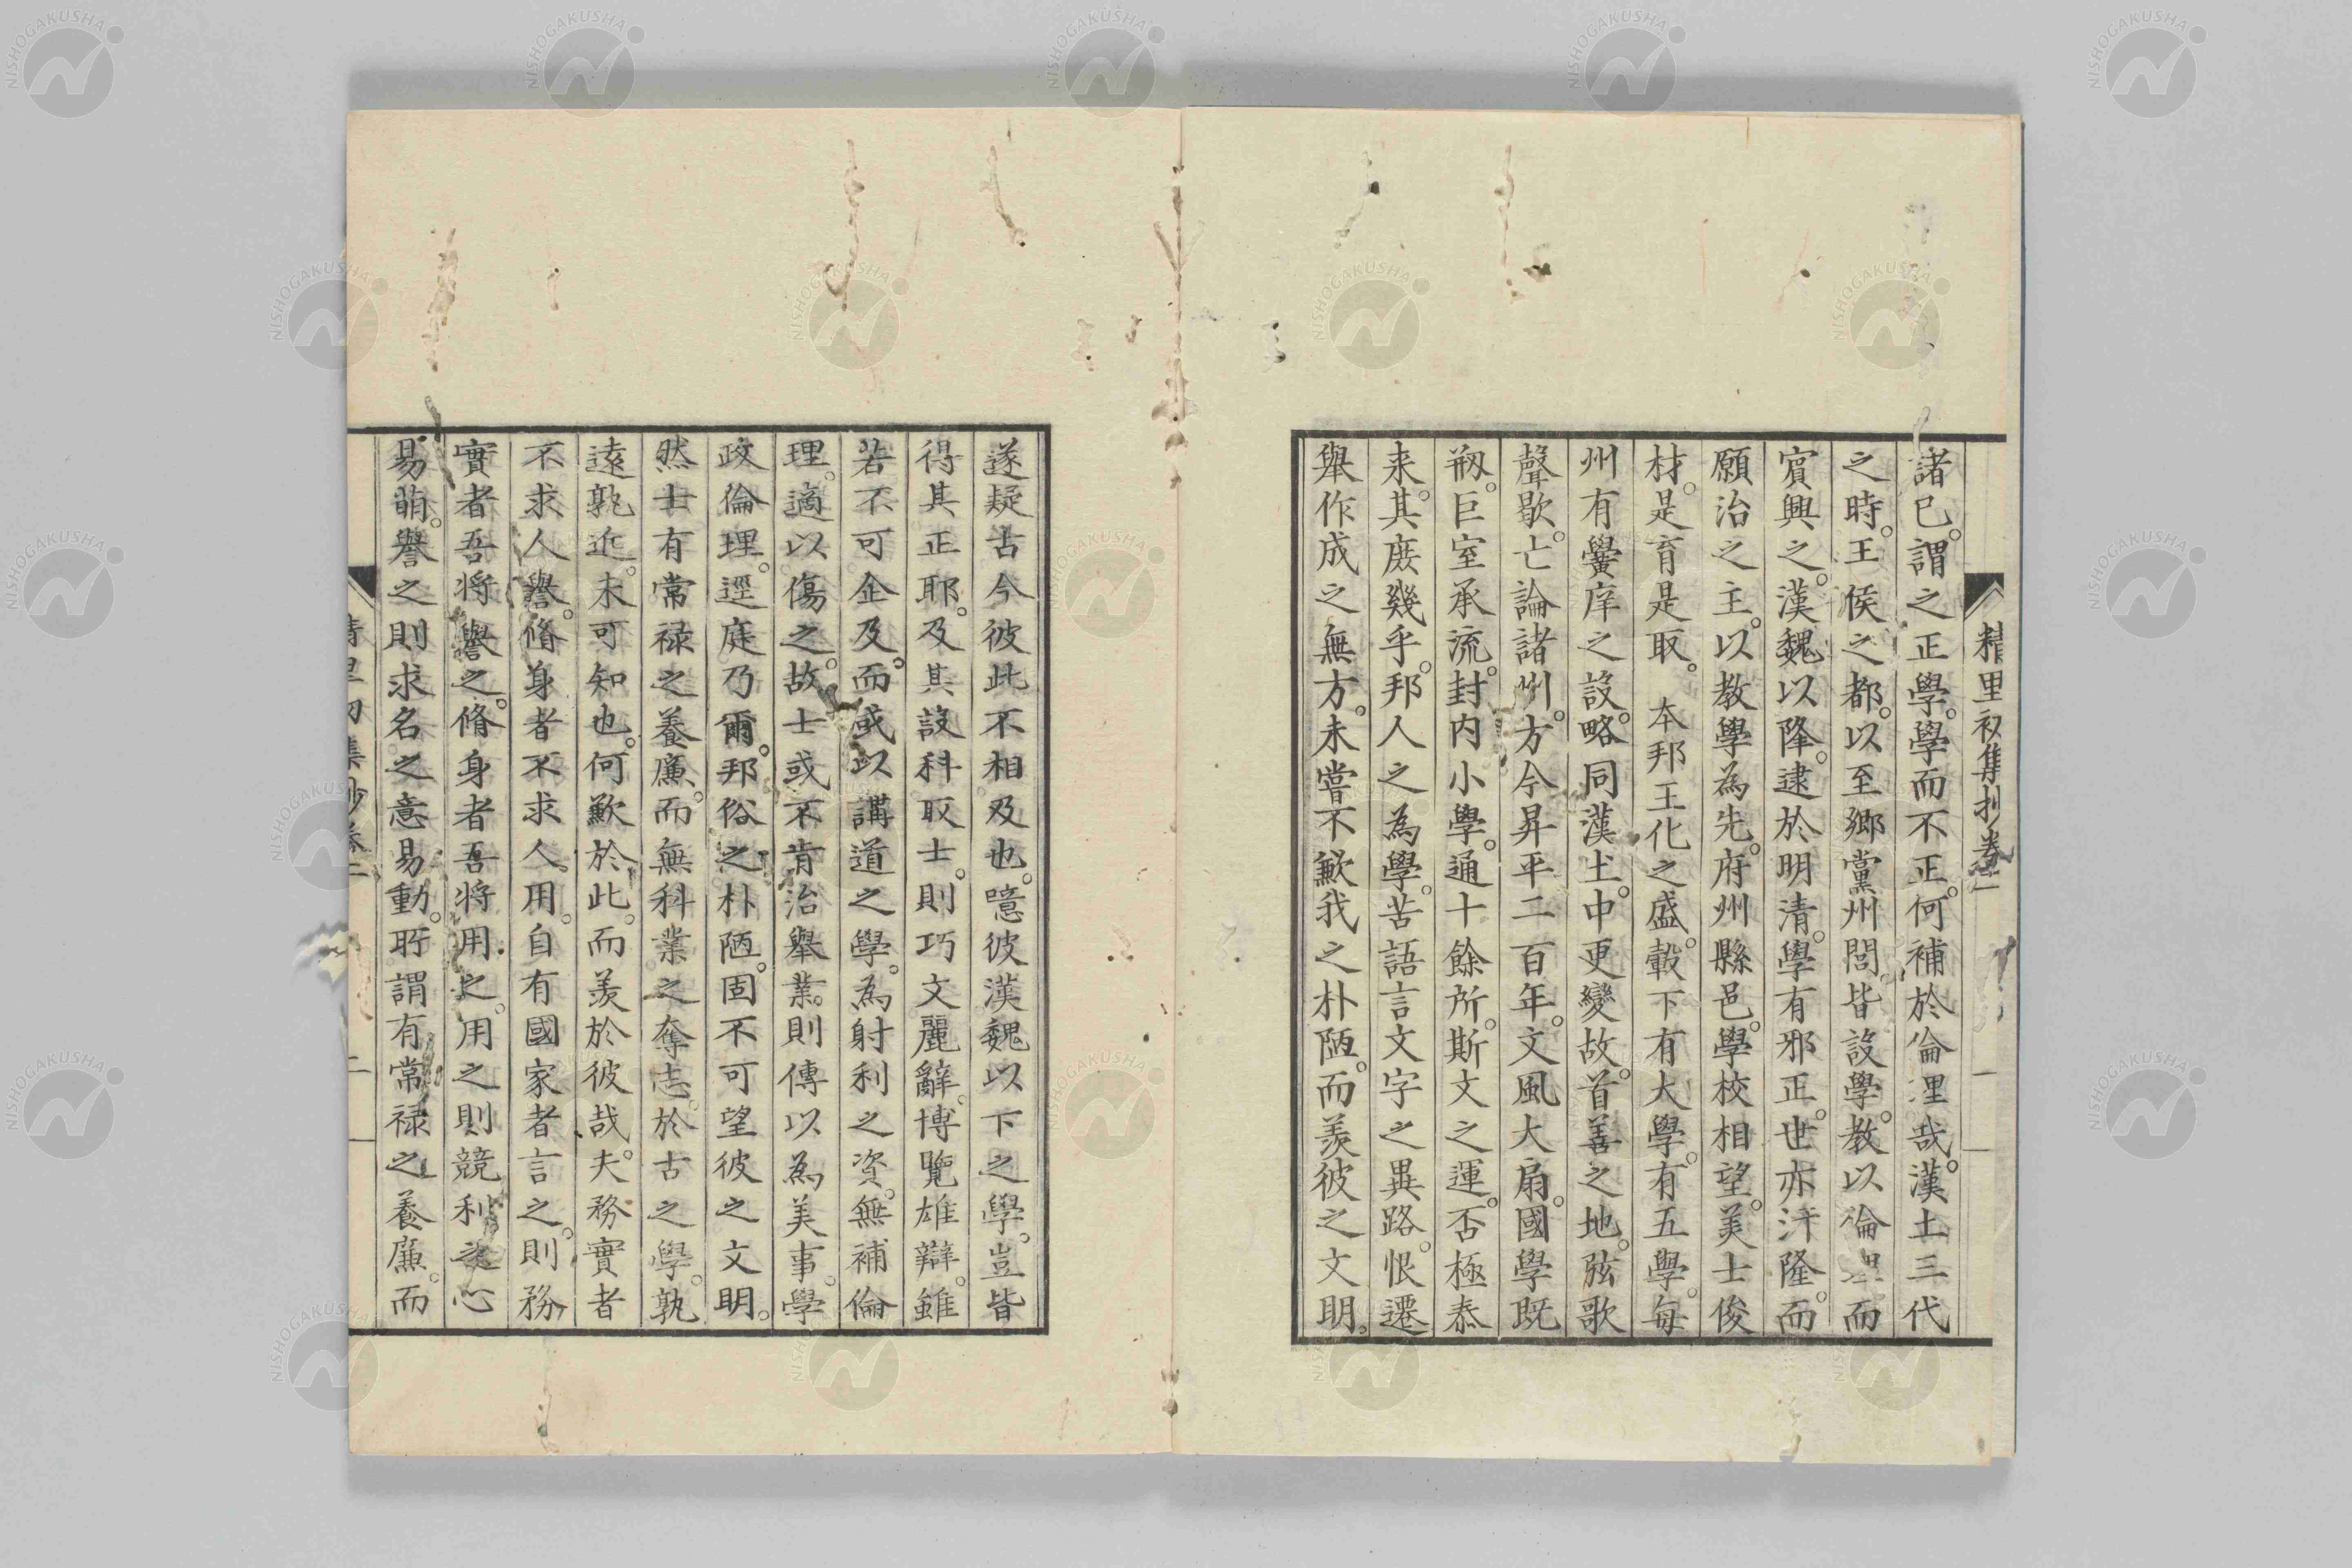 精里初集抄卷一
諸已。謂之正學。學而不正。何補於倫理哉。漢土三代
之時。王侯之都。以至鄉黨州閭。皆設學。教以倫理而
賓興之。漢魏以降。逮於明清。學有邪正。世亦汙隆。而
願治之主。以教學為先。府州縣邑。學校相望。美士俊
材。是育是取。本邦王化之盛。轂下有大學。有五學。每
州有黌庠之設。略同漢土。中更變故。首善之地。弦歌
聲歇。亡論諸州。方今昇平二百年。文風大扇。國學既
剏。巨室承流。封內小學。通十餘所。斯文之運。否極泰
来。其庶幾乎。邦人之為學。苦語言文字之異路。恨遷
舉作成之無方。未嘗不歉我之朴陋。而羨彼之文明。
遂疑古今彼此不相及也。噫彼漢魏以下之學。豈皆
得其正耶。及其設科取士。則巧文麗辭。博覽雄辯。雖
若不可企及。而或以講道之學。為射利之資。無補倫
理。適以傷之。故士或不肯治舉業。則傳以為美事。學
政倫理。逕庭乃爾。邦俗之朴陋。固不可望彼之文明。
然士有常禄之養廉。而無科業之奪志。於古之學。孰
遠孰近。未可知也。何歉於此。而羨於彼哉。夫務實者
不求人譽。脩身者不求人用。自有國家者言之。則務
實者吾將譽之。脩身者吾將用之。用之則競利之心
易萌。譽之則求名之意易動。所謂有常禄之養廉。而
精里初集抄卷一
二
NISHOGAKUSHA